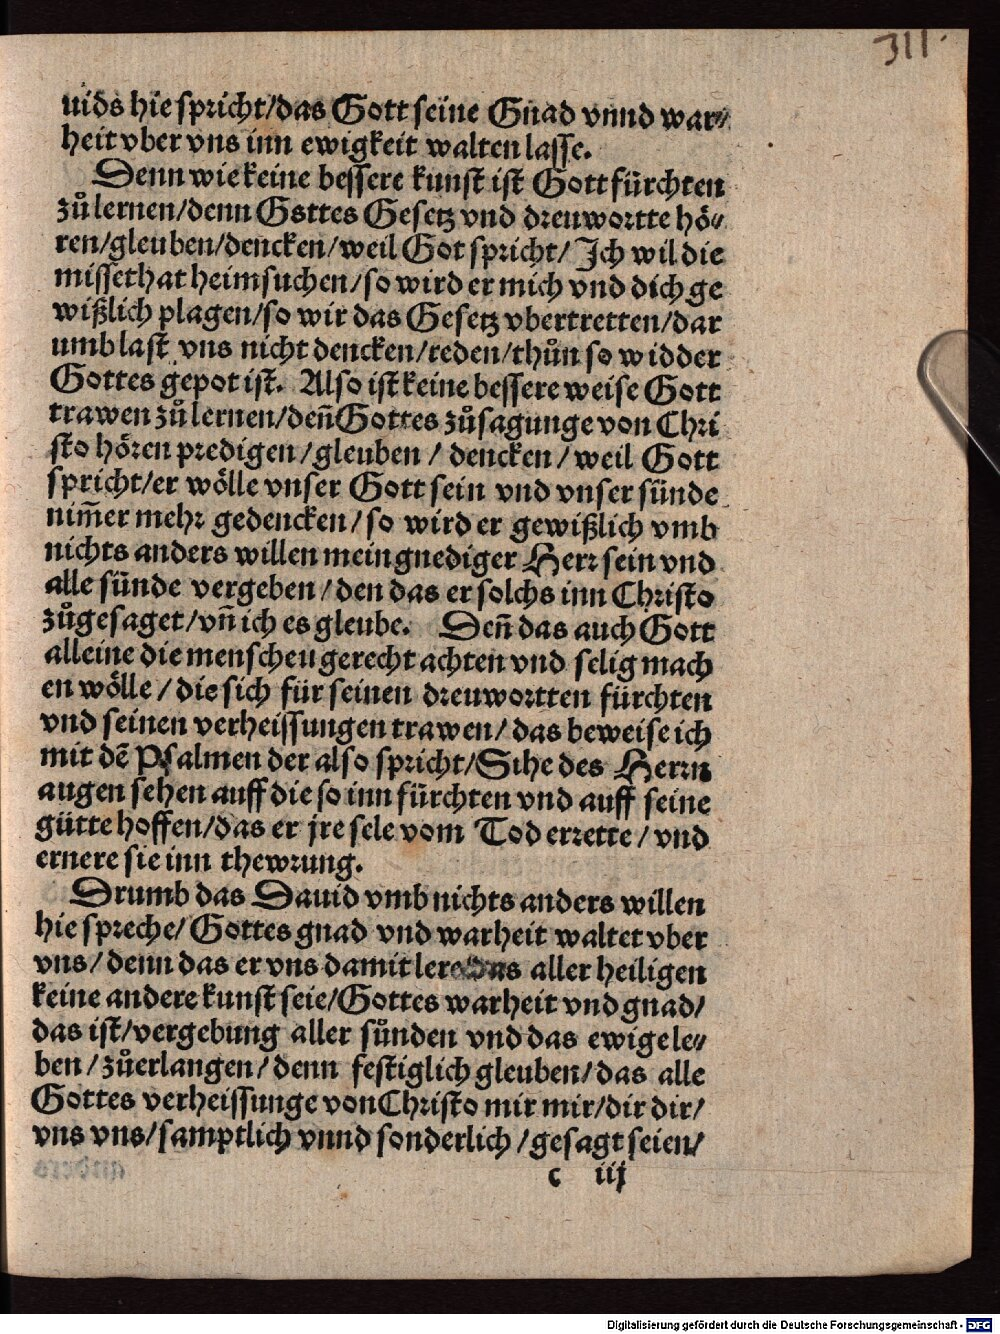 311.
uids hie spricht/das Gott seine Gnad vnnd war⸗
heit vber vns inn ewigkeit walten lasse.
Denn wie keine bessere kunst ist Gott fürchten
zů lernen/denn Gsttes Gesetz vnd dreuwortte hö⸗
ren/gleuben/dencken/weil Got spricht/ Ich wil die
missethat heimsuchen/so wird er mich vnd dich ge
wißlich plagen/so wir das Gesetz vbertretten/dar
umb last vns nicht dencken/reden/thůn so widder
Gottes gepot ist. Also ist keine bessere weise Gott
trawen zů lernen/deñ Gottes zůsagunge von Chri
sto hören predigen/gleuben/ dencken/ weil Gott
spricht/er wölle vnser Gott sein vnd vnser sünde
nim̄er mehr gedencken/so wird er gewißlich vmb
nichts anders willen mein gnediger Herr sein vnd
alle sünde vergeben/den das er solchs inn Christo
zůgesaget/vñ ich es gleube. Deñ das auch Gott
alleine die menscheu gerecht achten vnd selig mach
en wölle/die sich für seinen dreuwortten fürchten
vnd seinen verheissungen trawen/das beweise ich
mit dē Psalmen der also spricht/Sihe des Herrn
augen sehen auff die so inn fürchten vnd auff seine
gütte hoffen/das er jre sele vom Tod errette/vnd
ernere sie inn thewrung.
Drumb das Dauid vmb nichts anders willen
hie spreche/Gottes gnad vnd warheit waltet vber
vns/denn das er vns damit lere das aller heiligen
keine andere kunst seie/Gottes warheit vnd gnad/
das ist/vergebung aller sůnden vnd das ewige le⸗
ben/zůerlangen/denn festiglich gleuben/das alle
Gottes verheissunge von Christo mir mir/dir dir/
vns vns/samptlich vnnd sonderlich/gesagt seien/
c iij
Digitalisierung gefördert durch die Deutsche Forschungsgemeinschaft - DFG